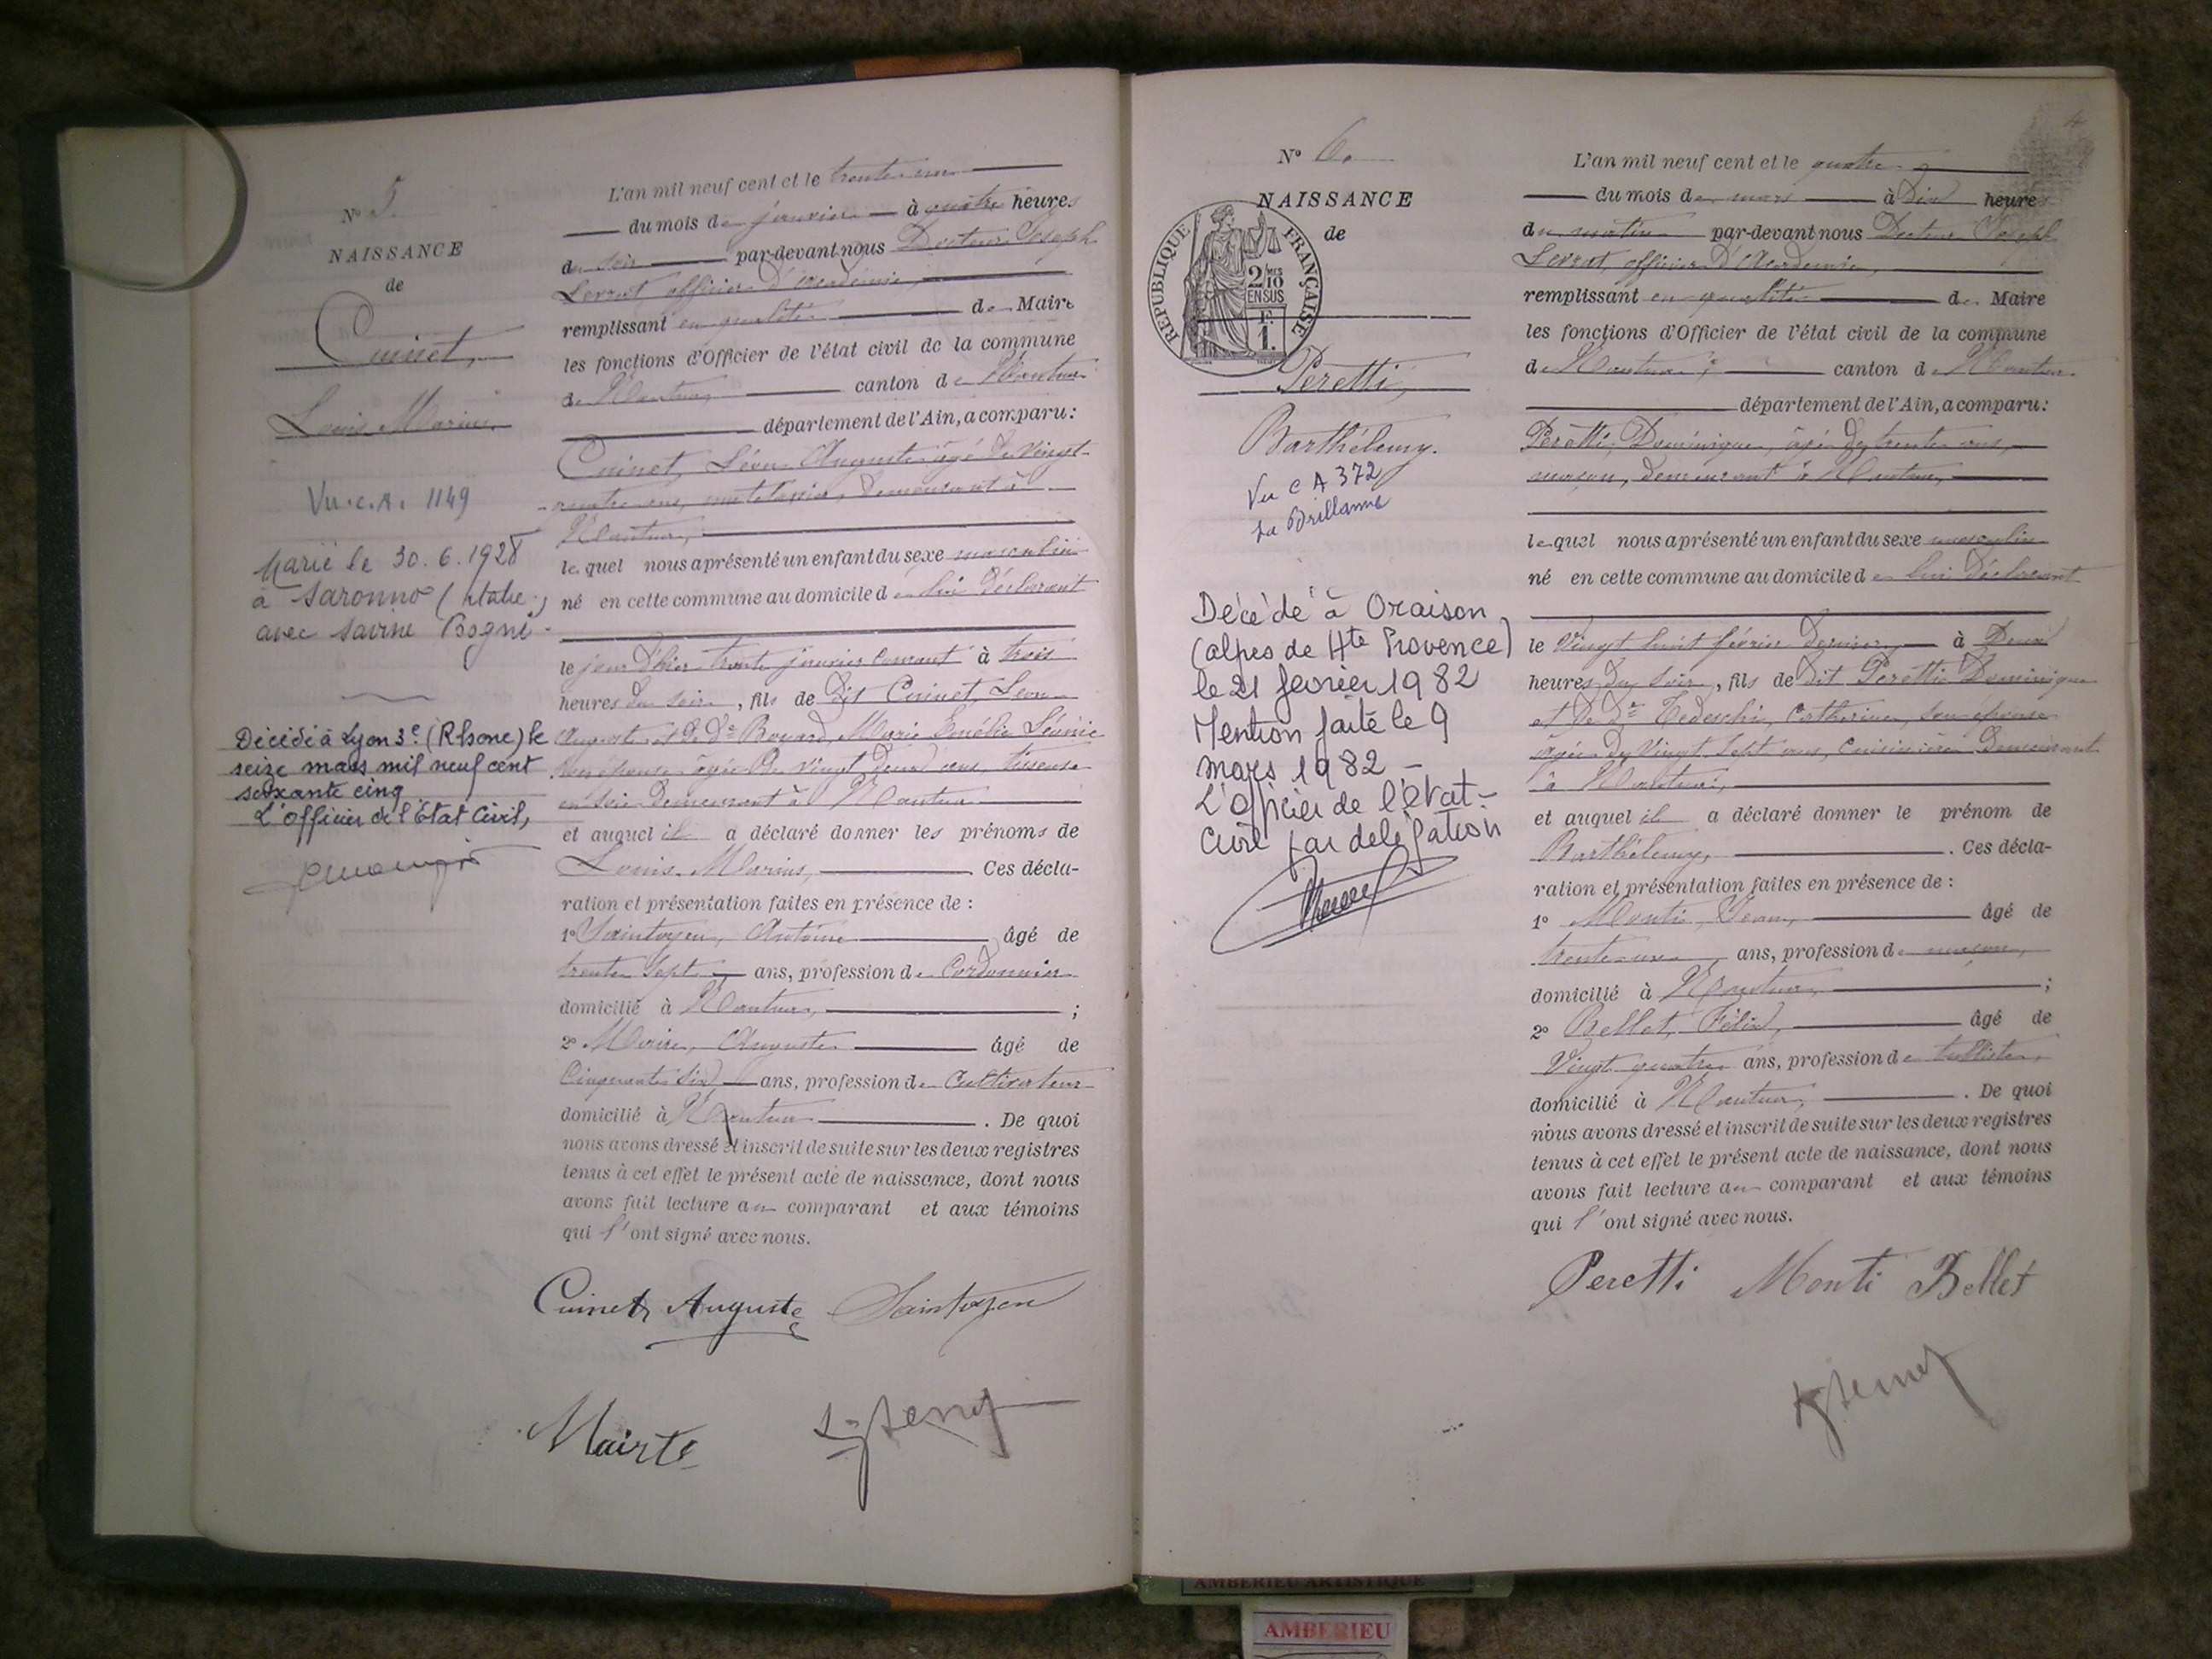 N° 5.
NAISSANCE
de
Cuinet,
Louis Marius,
Vu. c. A. 1149
Marié le 30.6.1928
à Saronno (Italie)
avec Savine Bogni
Décédé à Lyon 3e (Rhône) le
seize mars mil neuf cent
soixante cinq
L'officier de l'État Civil,
L'an mil neuf cent et le trente un
du mois de janvier à quatre heures
du soir par-devant nous Docteur Joseph
officier d'Académie,
remplissant en qualité de Maire
les fonctions d'Officier de l'état civil de la commune
de Nantua, canton de Nantua
département de l'Ain, a comparu:
Cuinet, Léon Auguste âgé de vingt
quatre ans, demeurant à
Nantua,
lequel nous a présenté un enfant du sexe masculin
né en cette commune au domicile de lui déclarant
le jour d'hier trente janvier courant à trois
heures du soir, fils de dit Cuinet, Léon
Auguste et de De Marie
son épouse âgée de vingt deux ans, tisseuse
en soie demeurant à Nantua
et auquel il a déclaré donner les prénoms de
Louis Marius, Ces décla-
ration et présentation faites en présence de:
1° Saintoyen, Antoine âgé de
trente sept ans, profession de Cordonnier
domicilié à Nantua, ;
2° Auguste âgé de
Cinquante six ans, profession de Cultivateur
domicilié à Nantua . De quoi
nous avons dressé et inscrit de suite sur les deux registres
tenus à cet effet le présent acte de naissance, dont nous
avons fait lecture au comparant et aux témoins
qui l'ont signé avec nous.
Cuinet Auguste Saintoyen
N° 6.
NAISSANCE
de
RÉPUBLIQUE FRANÇAISE
2/10
EN SUS
1.
Peretti,
Barthélemy.
Vu c A 372
La Brillanne
Décédé à Oraison
(alpes de Hte Provence)
le 21 fevrier 1982
Mention faite le 9
mars 1982 -
L'officier de l'état-
civil par delegation
L'an mil neuf cent et le quatre
du mois de mars à dix heures
du matin par-devant nous Docteur Joseph
officier d'Académie,
remplissant en qualité de Maire
les fonctions d'Officier de l'état civil de la commune
de Nantua, canton de Nantua
département de l'Ain, a comparu:
Peretti, Dominique, âgé de trente ans,
maçon, demeurant à Nantua,
lequel nous a présenté un enfant du sexe masculin
né en cette commune au domicile de lui déclarant
le vingt huit février dernier à Deux
heures du soir, fils de dit Peretti Dominique
et de De Tedeschi, Catherine, son épouse
âgée de vingt sept ans, cuisinière demeurant
à Nantua,
et auquel il a déclaré donner le prénom de
Barthélemy, . Ces décla-
ration et présentation faites en présence de:
1° Monti, Jean, âgé de
ans, profession de maçon,
domicilié à Nantua, ;
2° Bellet, Félix, âgé de
Vingt quatre ans, profession de tulliste,
domicilié à Nantua, . De quoi
nous avons dressé et inscrit de suite sur les deux registres
tenus à cet effet le présent acte de naissance, dont nous
avons fait lecture au comparant et aux témoins
qui l'ont signé avec nous.
Peretti Monti Bellet
AMBERIEU ARTISTIQUE
AMBERIEU